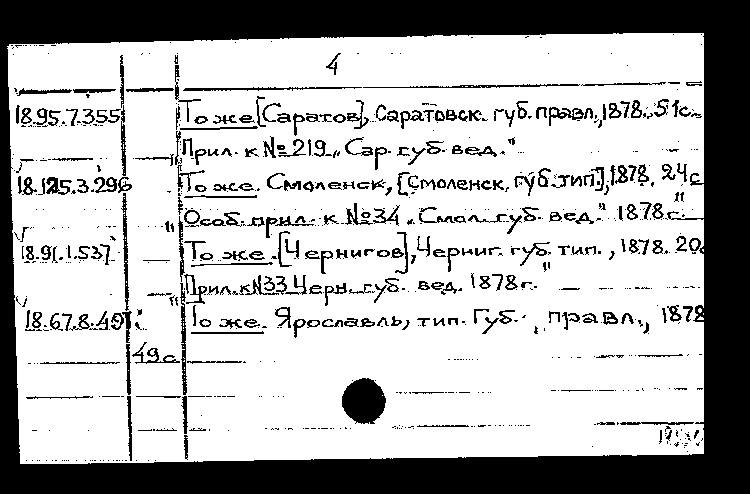 4
18.95.7.355 То же [Саратов], Саратовск. губ. правл., 1878. 51с.
Прил. к № 219 „Сар. губ. вед."
18.125.3.296 То же. Смоленск, [Смоленск. губ. тип.], 1878. 24с
Особ. прил. к № 34 „Смол. губ. вед." 1878 г."
18.91.1.537 То же. [Чернигов], Черниг. губ. тип., 1878. 20с
Прил. к №33 Черн. губ. вед. 1878 г."
18.67.8.491. То же. Ярославль, тип. Губ. правл., 1878
49 с